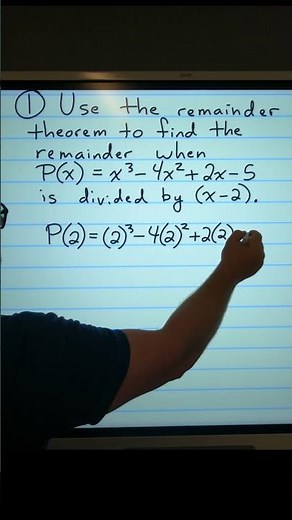 ① Use the remainder
theorem to find the
remainder when
P(x) = x³ - 4x² + 2x - 5
is divided by (x-2).
P(2) = (2)³ - 4(2)² + 2(2)